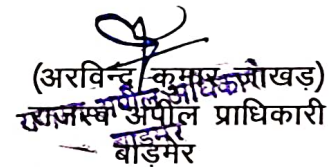 (अरविन्द कुमार जाखड़)
राजस्व अपील प्राधिकारी
बाड़मेर
राजस्व अपील अधिकारी
बाड़मेर